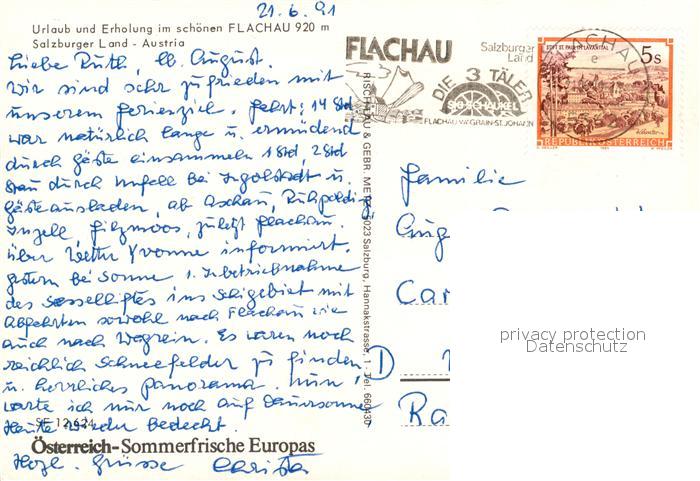 21.6.91
Urlaub und Erholung im schönen FLACHAU 920 m
Salzburger Land - Austria
Liebe Ruth, lb. August.
Wir sind sehr zufrieden mit
unserem Ferienziel. Fahrt: 14 Std
war natürlich lange u. ermüdend
durch Gäste einsammeln 1 Std, 2 Std
Stau durch Unfall bei Ingolstadt u.
Gäste ausladen, ab Aschau, Ruhpolding
Inzell, Filzmoos, zuletzt Flachau.
Über Wetter Yvonne informiert.
Gestern bei Sonne 1. Inbetriebnahme
des Sesselliftes ins Skigebiet mit
Abfahrten sowohl nach Flachau wie
auch nach Wagrein. Es waren noch
reichlich Schneefelder zu finden
u. herrliches Panorama. Nun
warte ich nur noch auf Dauersonne
Heute wieder bedeckt.
SE 12 624
Österreich-Sommerfrische Europas
Herzl. Grüsse Christa
RISCH-LAU & GEBR. METZ, 5023 Salzburg, Hannakstrasse, 1 - Tel. 660437
FLACHAU
Salzburger
Land
DIE 3 TÄLER
SKISCHAUKEL
FLACHAU-WAGRAIN-ST.JOHANN
FLACHAU
e
STIFT ST. PAUL IM LAVANTTAL
5s
REPUBLIK ÖSTERREICH
Familie
Aug
Car
D
Ra
privacy protection
Datenschutz